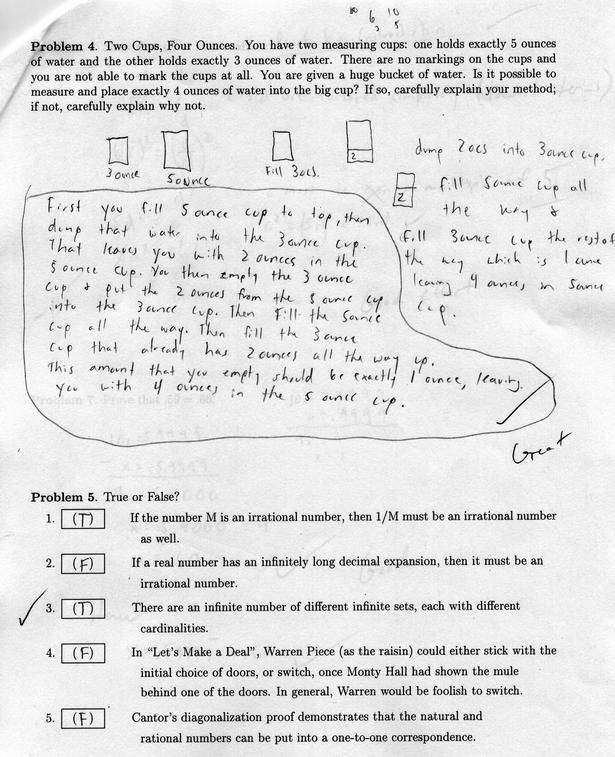 6 10
3 5
Problem 4. Two Cups, Four Ounces. You have two measuring cups: one holds exactly 5 ounces
of water and the other holds exactly 3 ounces of water. There are no markings on the cups and
you are not able to mark the cups at all. You are given a huge bucket of water. Is it possible to
measure and place exactly 4 ounces of water into the big cup? If so, carefully explain your method;
if not, carefully explain why not.
3 ounce
5 ounce
Fill 3 ozs.
2
dump 2 ozs into 3 ounce cup.
2
fill 5 ounce cup all
the way &
fill 3 ounce cup the rest of
the way which is 1 ounce
leaving 4 ounces in 5 ounce
cup.
First you fill 5 ounce cup to top, then
dump that water into the 3 ounce cup.
That leaves you with 2 ounces in the
5 ounce cup. You then empty the 3 ounce
cup & put the 2 ounces from the 5 ounce cup
into the 3 ounce cup. Then fill the 5 ounce
cup all the way. Then fill the 3 ounce
cup that already has 2 ounces all the way up.
This amount that you empty should be exactly 1 ounce, leaving
you with 4 ounces in the 5 ounce cup.
Great
Problem 5. True or False?
1. (T) If the number M is an irrational number, then 1/M must be an irrational number
as well.
2. (F) If a real number has an infinitely long decimal expansion, then it must be an
irrational number.
3. (T) There are an infinite number of different infinite sets, each with different
cardinalities.
4. (F) In “Let's Make a Deal”, Warren Piece (as the raisin) could either stick with the
initial choice of doors, or switch, once Monty Hall had shown the mule
behind one of the doors. In general, Warren would be foolish to switch.
5. (F) Cantor's diagonalization proof demonstrates that the natural and
rational numbers can be put into a one-to-one correspondence.